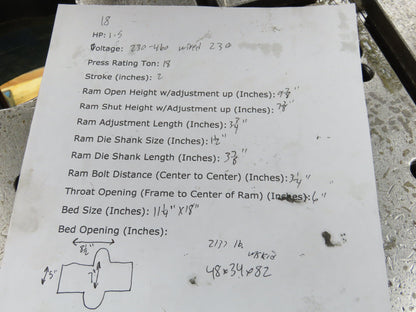 18
HP: 1.5
Voltage: 230-460 wired 230
Press Rating Ton: 18
Stroke (inches): 2
Ram Open Height w/adjustment up (Inches): 9 3/8"
Ram Shut Height w/Adjustment up (Inches): 7 3/8"
Ram Adjustment Length (Inches):
Ram Die Shank Size (Inches): 1 1/2"
Ram Die Shank Length (Inches): 3 3/8"
Ram Bolt Distance (Center to Center) (Inches): 3 1/4"
Throat Opening (Frame to Center of Ram) (Inches): 6"
Bed Size (Inches): 11 1/4" X 18"
Bed Opening (Inches):
8 1/2"
5"
7"
2130 lb
w/skid
48x34x82